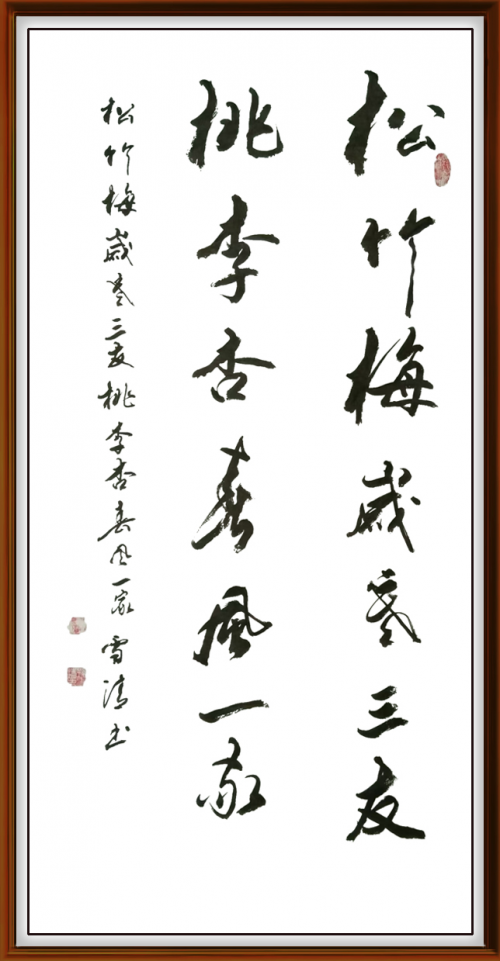 松竹梅歲寒三友
桃李杏春風一家
松竹梅歲寒三友桃李杏春风一家 雪清书